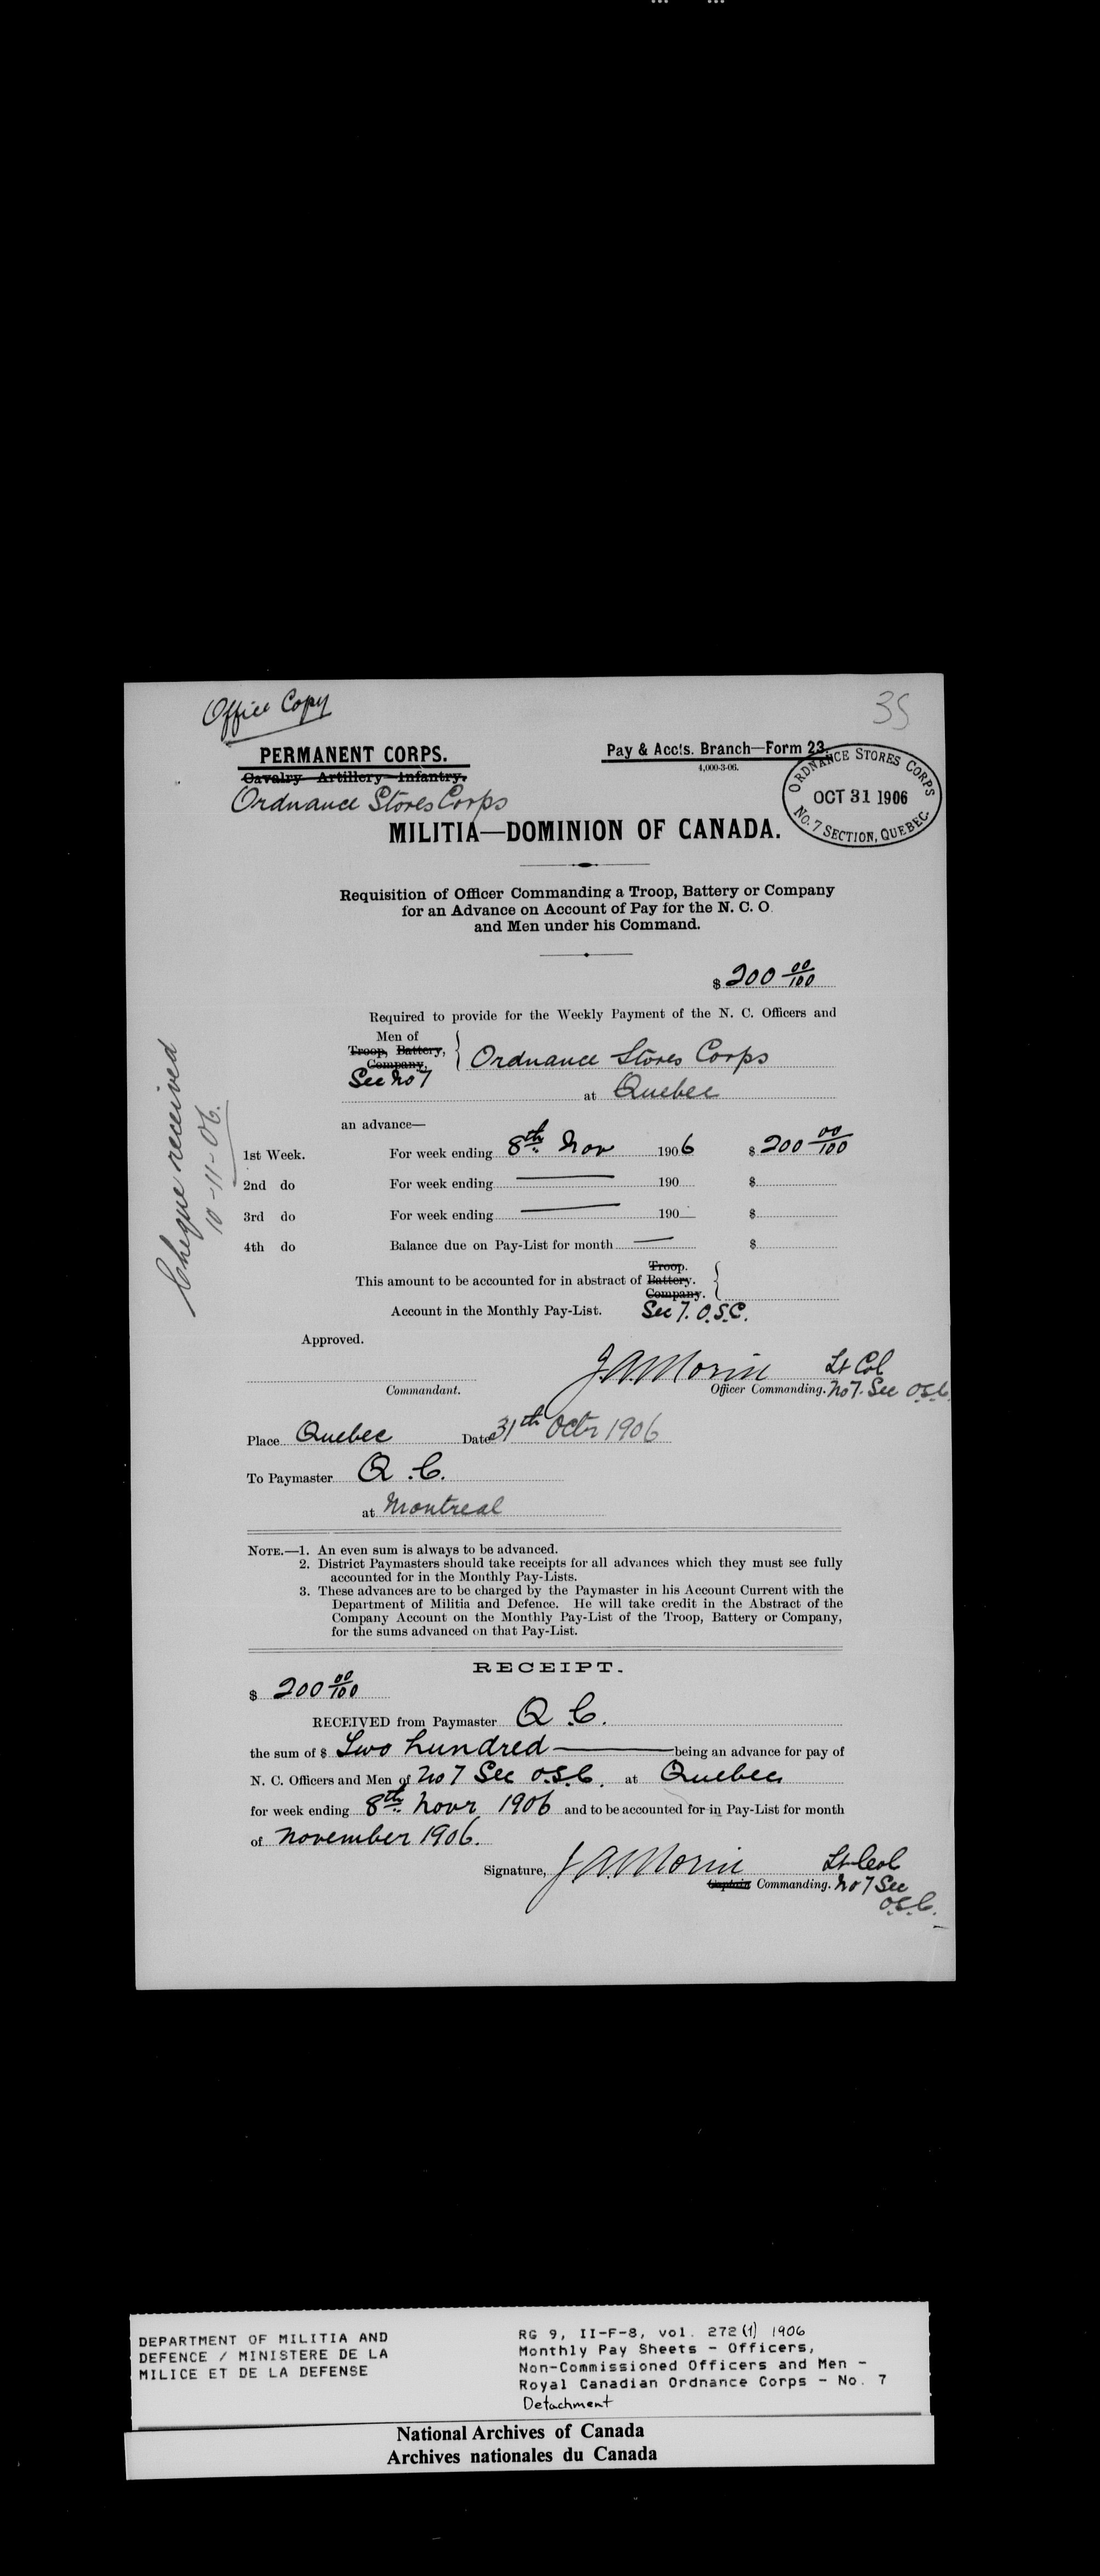 Office Copy
35
PERMANENT CORPS.
Pay & Accts. Branch—Form 23.
4,000-3-06.
Cavalry Artillery Infantry.
Ordnance Stores Corps
ORDNANCE STORES CORPS
OCT 31 1906
No. 7 SECTION, QUEBEC.
MILITIA—DOMINION OF CANADA.
Requisition of Officer Commanding a Troop, Battery or Company
for an Advance on Account of Pay for the N. C. O.
and Men under his Command.
$ 200 00/100
Required to provide for the Weekly Payment of the N. C. Officers and
Men of
Troop, Battery,
Company,
Sec No 7
Ordnance Stores Corps
at Quebec
an advance—
1st Week. For week ending 8th Nov 1906 $ 200 00/100
2nd do For week ending 190 $
3rd do For week ending 190 $
4th do Balance due on Pay-List for month $
Cheque received
10-11-06.
This amount to be accounted for in abstract of Troop. Battery. Company.
Account in the Monthly Pay-List. Sec 7. O.S.C.
Approved.
J.A. Morin Lt Col
Commandant. Officer Commanding. No 7. Sec O.S.C.
Place Quebec Date 31th Octr 1906
To Paymaster Q. C.
at Montreal
NOTE.—1. An even sum is always to be advanced.
2. District Paymasters should take receipts for all advances which they must see fully
accounted for in the Monthly Pay-Lists.
3. These advances are to be charged by the Paymaster in his Account Current with the
Department of Militia and Defence. He will take credit in the Abstract of the
Company Account on the Monthly Pay-List of the Troop, Battery or Company,
for the sums advanced on that Pay-List.
RECEIPT.
$ 200 00/100
RECEIVED from Paymaster Q C.
the sum of $ Two hundred being an advance for pay of
N. C. Officers and Men of No 7 Sec O.S.C. at Quebec
for week ending 8th Novr 1906 and to be accounted for in Pay-List for month
of November 1906.
Signature, J A Morin Lt Col
Captain Commanding. No 7 Sec
O.S.C.
DEPARTMENT OF MILITIA AND
DEFENCE / MINISTERE DE LA
MILICE ET DE LA DEFENSE
RG 9, II-F-8, vol. 272 (1) 1906
Monthly Pay Sheets - Officers,
Non-Commissioned Officers and Men -
Royal Canadian Ordnance Corps - No. 7
Detachment
National Archives of Canada
Archives nationales du Canada